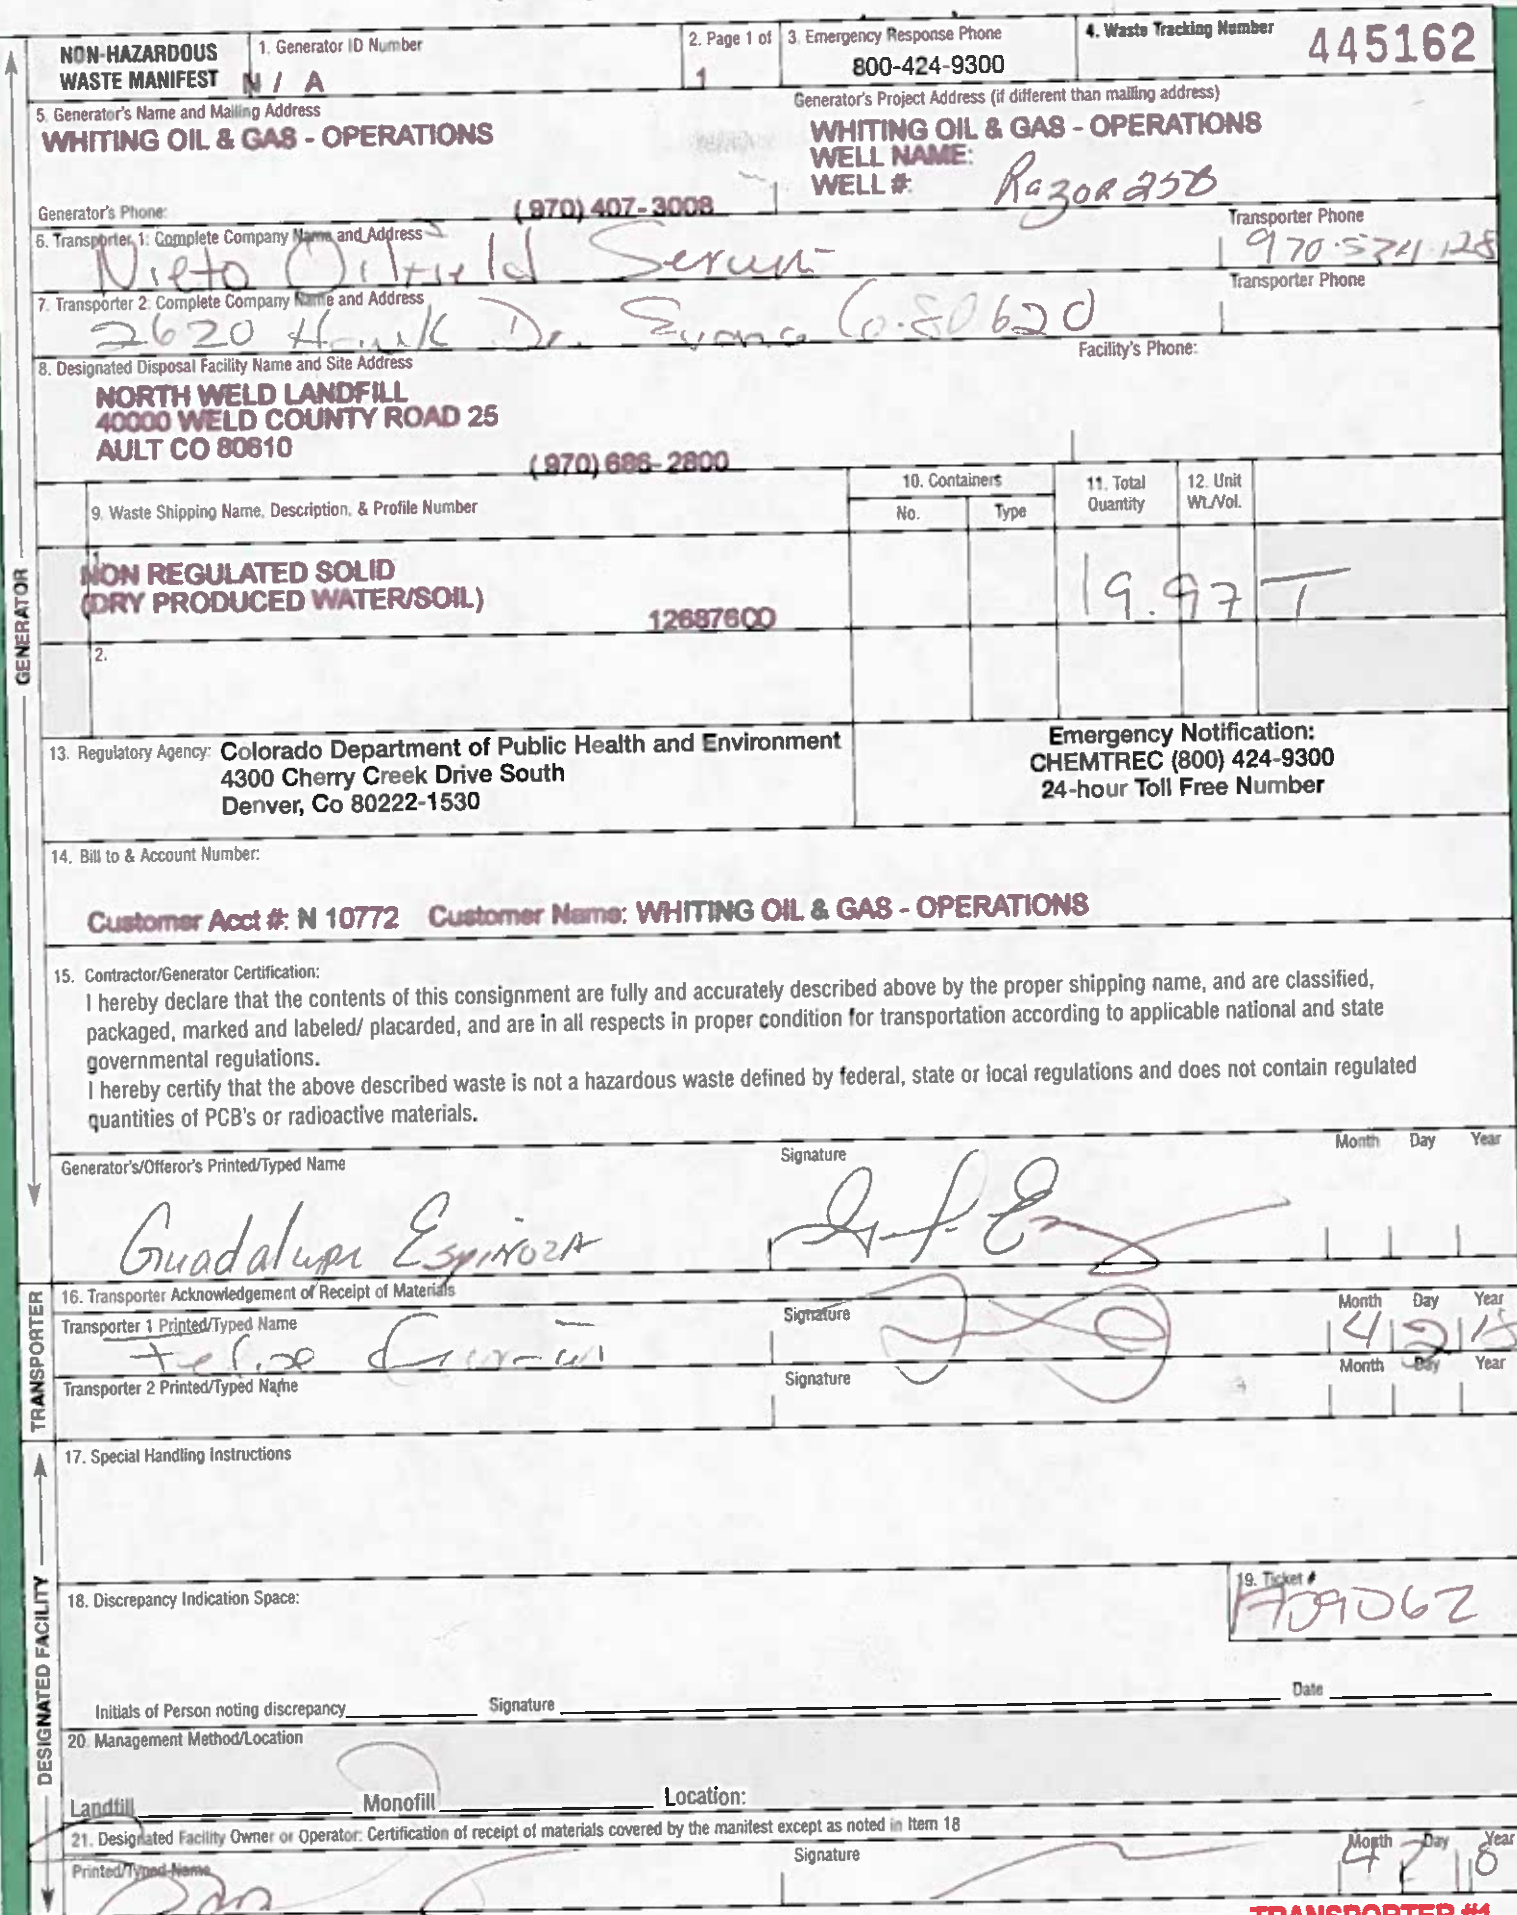 NON-HAZARDOUS
WASTE MANIFEST
1. Generator ID Number
N / A
2. Page 1 of
1
3. Emergency Response Phone
800-424-9300
4. Waste Tracking Number
445162
5. Generator's Name and Mailing Address
WHITING OIL & GAS - OPERATIONS
Generator's Project Address (if different than mailing address)
WHITING OIL & GAS - OPERATIONS
WELL NAME:
WELL #: Razor 25B
Generator's Phone: (970) 407-3008
6. Transporter 1: Complete Company Name and Address
Nieto Oilfield
Transporter Phone
7. Transporter 2: Complete Company Name and Address
Transporter Phone
2620 Dr. Evans Co. 80620
8. Designated Disposal Facility Name and Site Address
Facility's Phone:
NORTH WELD LANDFILL
40000 WELD COUNTY ROAD 25
AULT CO 80610
(970) 686-2800
9. Waste Shipping Name, Description, & Profile Number
10. Containers
No.
Type
11. Total
Quantity
12. Unit
Wt./Vol.
1.
NON REGULATED SOLID
(DRY PRODUCED WATER/SOIL)
12687600
19.97 T
2.
13. Regulatory Agency: Colorado Department of Public Health and Environment
4300 Cherry Creek Drive South
Denver, Co 80222-1530
Emergency Notification:
CHEMTREC (800) 424-9300
24-hour Toll Free Number
14. Bill to & Account Number:
Customer Acct #: N 10772 Customer Name: WHITING OIL & GAS - OPERATIONS
15. Contractor/Generator Certification:
I hereby declare that the contents of this consignment are fully and accurately described above by the proper shipping name, and are classified,
packaged, marked and labeled/ placarded, and are in all respects in proper condition for transportation according to applicable national and state
governmental regulations.
I hereby certify that the above described waste is not a hazardous waste defined by federal, state or local regulations and does not contain regulated
quantities of PCB's or radioactive materials.
Generator's/Offeror's Printed/Typed Name
Signature
Month Day Year
Guadalupe Espinoza
16. Transporter Acknowledgement of Receipt of Materials
Transporter 1 Printed/Typed Name
Signature
Month Day Year
Felipe
4 2 18
Transporter 2 Printed/Typed Name
Signature
Month Day Year
17. Special Handling Instructions
18. Discrepancy Indication Space:
19. Ticket #
709062
Initials of Person noting discrepancy
Signature
Date
20. Management Method/Location
Landfill
Monofill
Location:
21. Designated Facility Owner or Operator: Certification of receipt of materials covered by the manifest except as noted in Item 18
Printed/Typed Name
Signature
Month Day Year
4 2 18
TRANSPORTER #1
GENERATOR
TRANSPORTER
DESIGNATED FACILITY